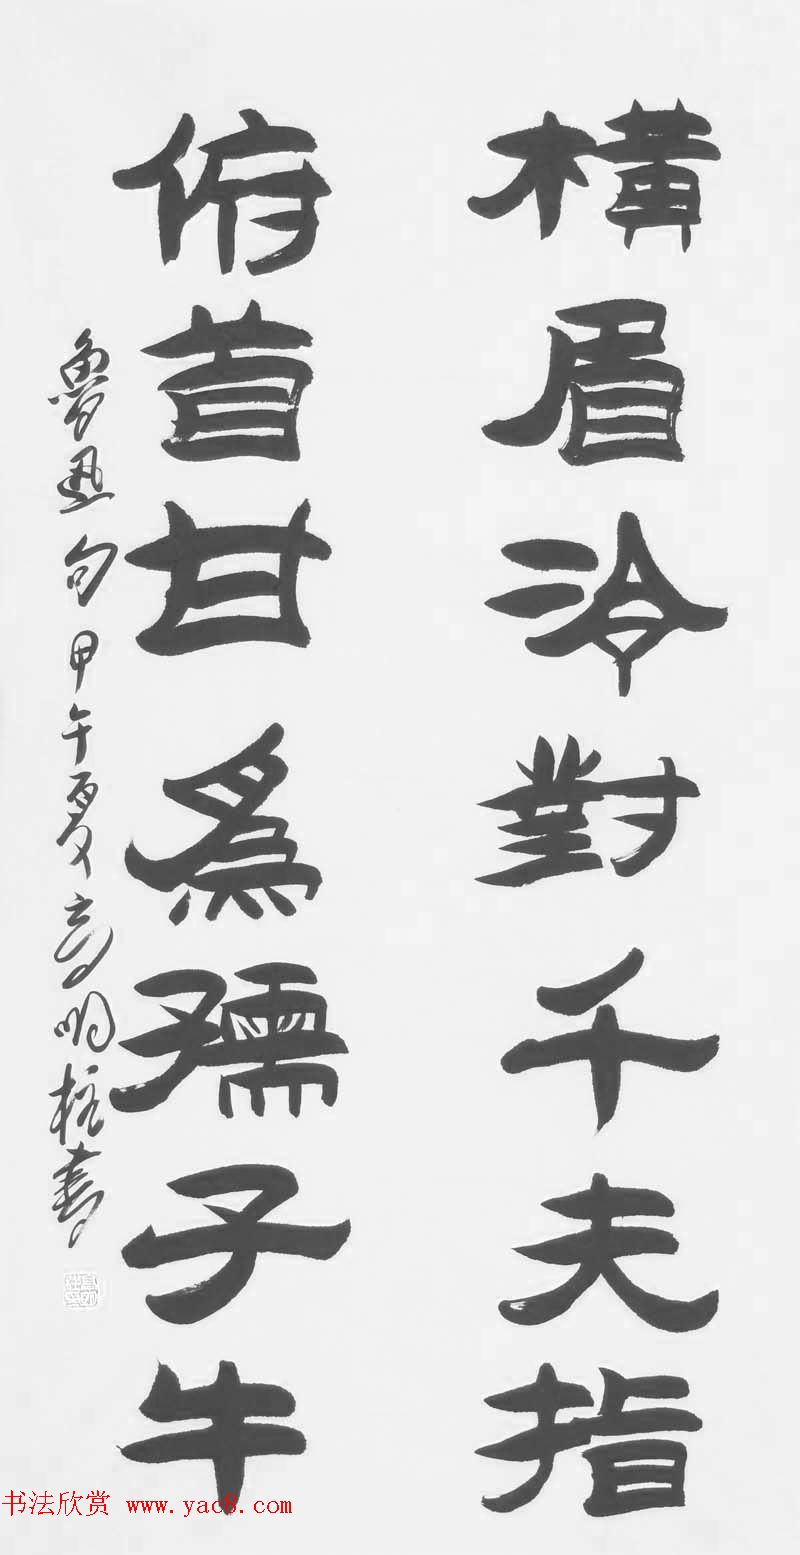 橫眉冷對千夫指
俯首甘為孺子牛
魯迅句甲午夏高明柱書
书法欣赏 www.yac8.com